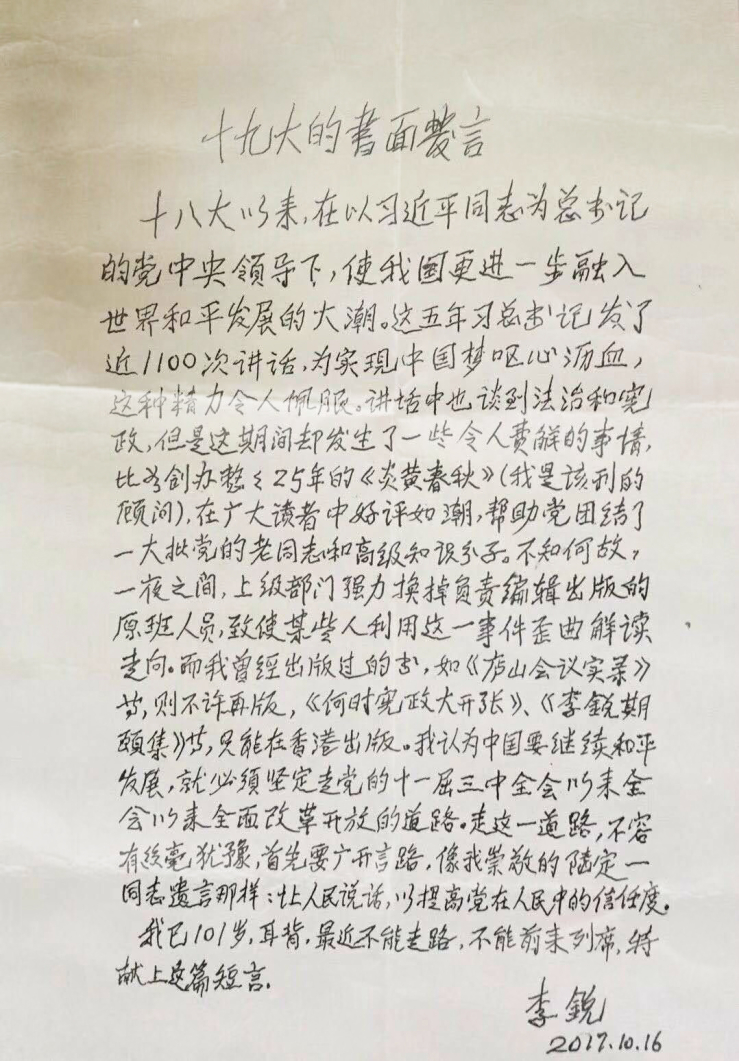 十九大的书面发言
十八大以来，在以习近平同志为总书记
的党中央领导下，使我国更进一步融入
世界和平发展的大潮。这五年习总书记发了
近1100次讲话，为实现中国梦呕心沥血，
这种精力令人佩服。讲话中也谈到法治和宪
政，但是这期间却发生了一些令人费解的事情，
比如创办整整25年的《炎黄春秋》（我是该刊的
顾问），在广大读者中好评如潮，帮助党团结了
一大批党的老同志和高级知识分子。不知何故，
一夜之间，上级部门强力换掉负责编辑出版的
原班人员，致使某些人利用这一事件歪曲解读
走向。而我曾经出版过的书，如《庐山会议实录》
等，则不许再版，《何时宪政大开张》、《李锐期
颐集》等，只能在香港出版。我认为中国要继续和平
发展，就必须坚定走党的十一届三中全会以来全
会以来全面改革开放的道路。走这一道路，不容
有丝毫犹豫，首先要广开言路，像我崇敬的陆定一
同志遗言那样：让人民说话，以提高党在人民中的信任度。
我已101岁，耳背，最近不能走路，不能前来列席，特
献上这篇短言。
李锐
2017.10.16